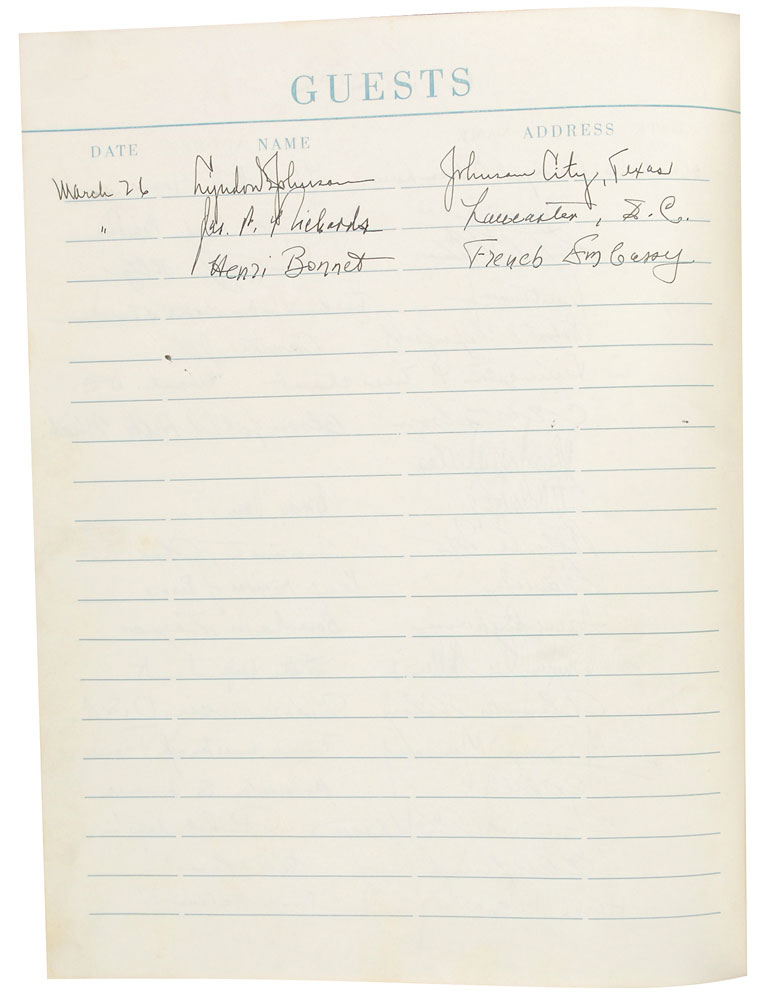 GUESTS
DATE NAME ADDRESS
March 26 Lyndon B Johnson Johnson City, Texas
" Jas. P. Richards Lancaster, S.C.
Henri Bonnet French Embassy